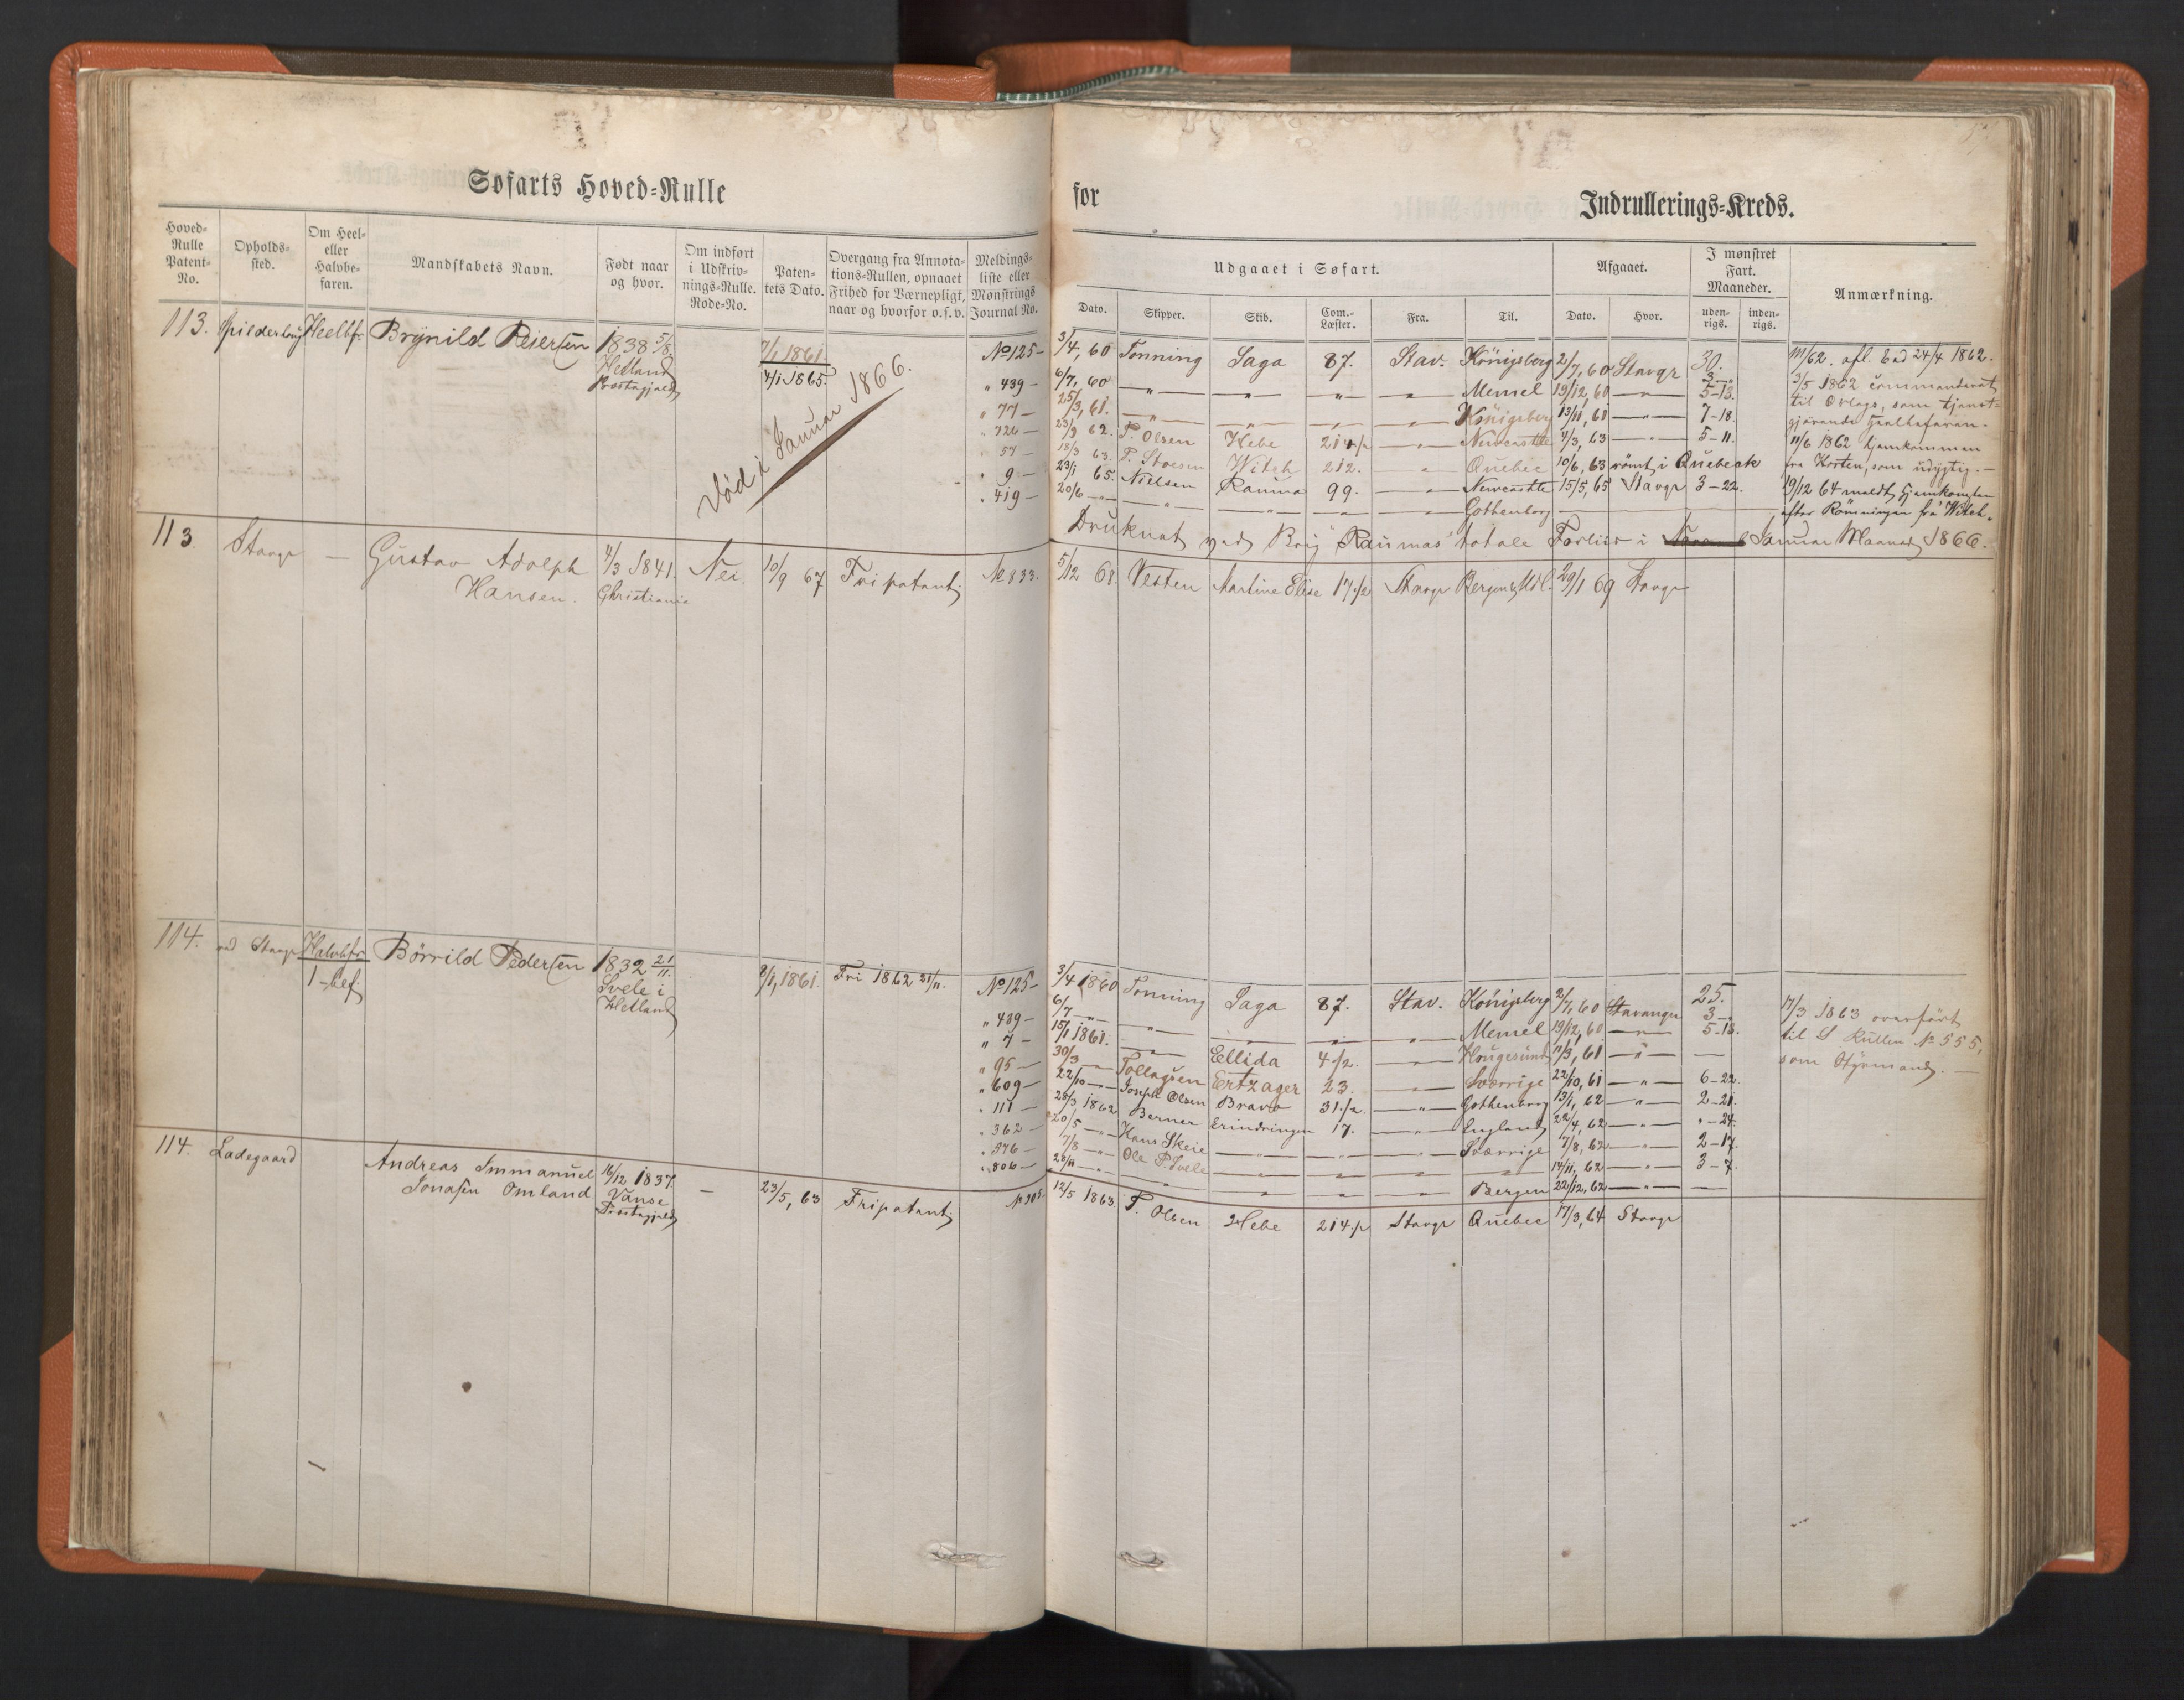 Søfarts Hoved-Rulle
for Indrullerings-Kreds.
Hoved-Rulle Patent-No.
Opholds-sted.
Om Heel- eller Halvbe-faren.
Mandskabets Navn.
Født naar og hvor.
Om indført i Udskriv-nings-Rulle. Rode-No.
Paten-tets Dato.
Overgang fra Annota-tions-Rullen, opnaaet Frihed for Værnepligt, naar og hvorfor o.s.v.
Meldings-liste eller Mønstrings Journal No.
Udgaaet i Søfart.
Dato. Skipper. Skib. Com.-Læster. Fra. Til.
Afgaaet.
Dato. Hvor.
I mønstret Fart. Maaneder.
uden-rigs. inden-rigs.
Anmærkning.
113. Heelbfr. Brynild Reiersen 1838 5/8. 7/1 1861.
Hetland Præstegjæld 4/1 1865.
Død i Januar 1866.
No 125 – 3/4, 60 Tonning Saga 87. Stav. Königsberg 2/7, 60 Stavgr 30.
" 439 – 6/7, 60 — " — " — " — Memel 19/12, 60 — " — 5-13.
" 77 – 25/3, 61. — " — Königsberg 13/11, 61 — " — 7-18
" 726 – 23/9 62. T. Olsen Hebe 214 1/2 — " — Newcastle 4/3, 63 — " — 5-11.
" 57 – 18/3 63. T. Stoesen Witch 212. " Quebec 10/6, 63 römt i Quebeck
" 9 – 23/1 65. Nielsen Rauma 99. — " — Newcastle 15/5, 65 Stavgr 3-22.
" 419 – 20/6 — " — Gothenborg
111/62. afl. Ed 24/4 1862.
3/5 1862 commanderet
til Orlogs, som tjenst-
gjørende Heelbefaren.
11/6 1862 hjemkommen
fra Horten, som udygtig. –
19/12 64 meldt hjemkommen
efter Rømningen fra Witch.
Druknet ved Brig Raumas totale Forliis i Januar Maaned 1866.
113 Stavgr — Gustav Adolph Hansen. 4/3 1841. Christiania Nei. 10/9 67 Fripatent. No 833. 5/12 68. Vesten Martine Elise 17 1/2 Stavgr Bergen 29/1 69 Stavgr
114. ved Stavgr Halvbfr. Børrild Pedersen 1832 21/11. 8/1, 1861. Fri 1862 21/11.
1 – bef.
Svele i
Hetland
No 125 – 3/4 1860 Tonning Saga 87. Stav. Königsberg 2/7, 60 Stavanger 25.
3 –
" 439 – 6/7 — " — " — Memel 19/12, 60 — " — 5-13.
" 7 – 15/1 1861. Ellida 4 1/2. — " — Hougesund 11/3, 61 — " — —
" 95 – 30/3 — Tollagsen Ertzager 23. — " — Sværrige 22/10, 61 — " — 6-22.
" 609 – 22/10 — " — Joseph Olsen Bravo 31 1/2. — " — Gothenborg 13/1, 62 — " — 2-21.
" 111 – 28/3 1862 Berner Erindringen 17. — " — England 22/4, 62 — " — " -24.
" 362 – 20/5 — " — Hans Skeie — " — Sværrige 7/8, 62 — " — 2-17.
" 576 – 7/8 — " — Ole P. Svele — " — 14/11, 62 — " — 3-7.
" 806 – 28/11 — " — Bergen 22/12, 62 — " — —
17/3 1863 overført
til S Rullen No 555,
som Styrmand. —
114. Ladegaard Andreas Immanuel 16/12 1837.
Jonasen Omland Vanse Præstegjæld — 23/5, 63 Fripatent. No 305. 12/5 1863. T. Olsen Hebe 214 1/2 Stavgr Quebec 17/3, 64 Stavgr